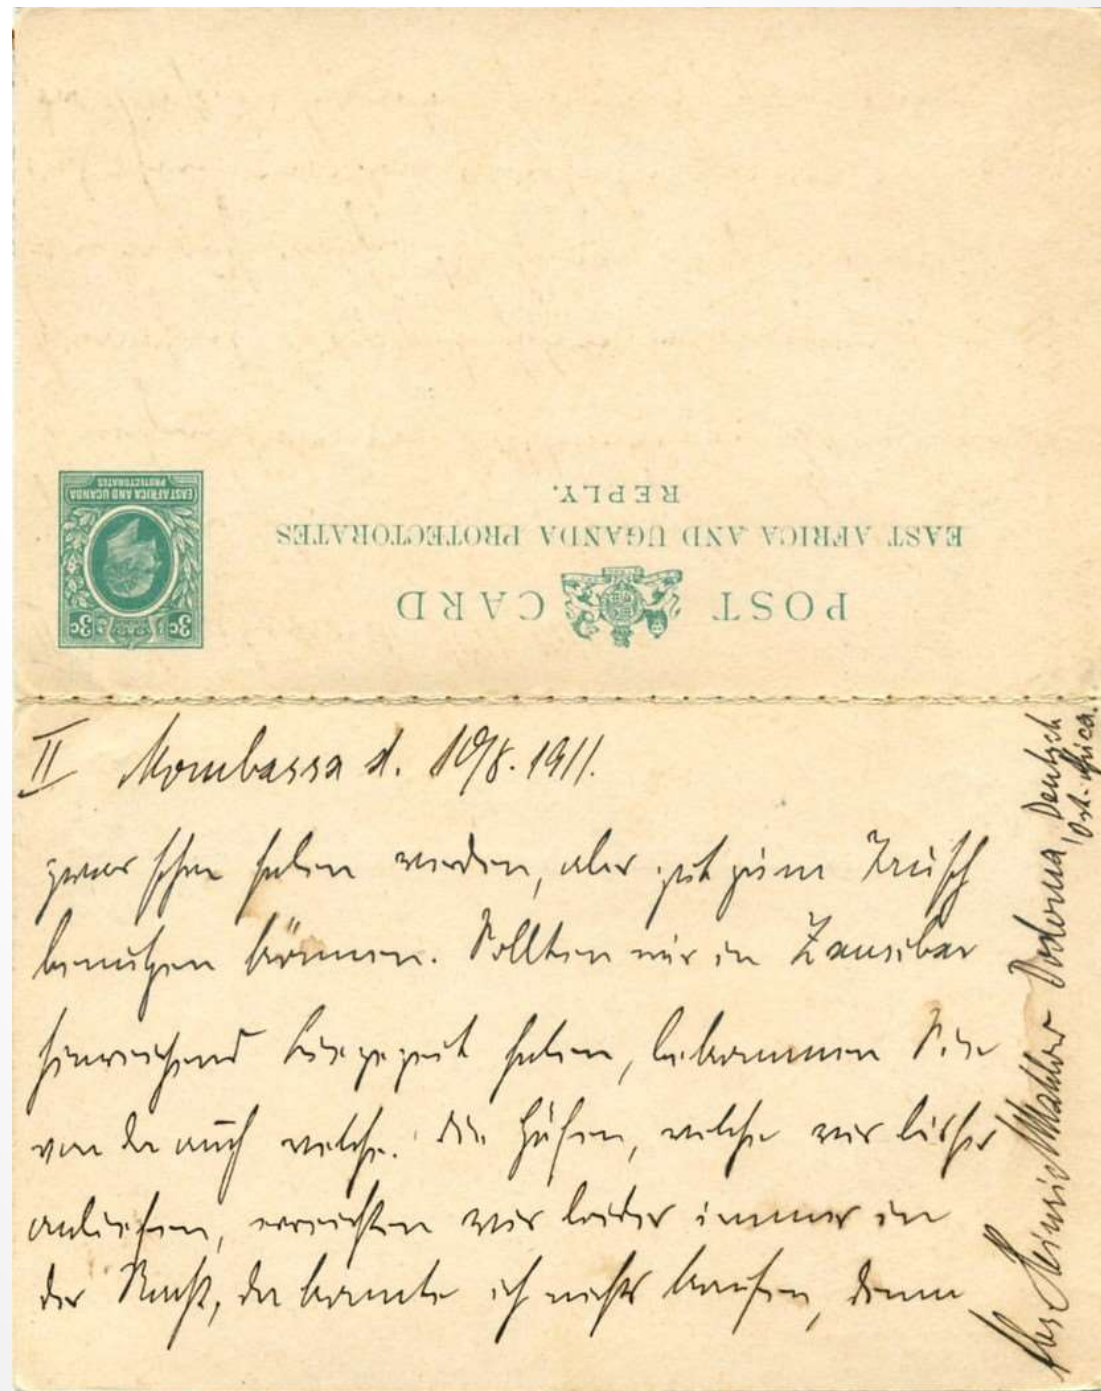 3c 3c
EAST AFRICA AND UGANDA
PROTECTORATES
POST CARD
EAST AFRICA AND UGANDA PROTECTORATES
REPLY.
II Mombassa d. 10/8. 1911.
zwar schon haben werden, aber gut zum Tausch
benutzen können. Sollten wir in Zansibar
hinreichend Liegezeit haben, bekommen Sie
von da auch welche. Die Häfen, welche wir bisher
anliefen, erreichten wir leider immer in
der Nacht, da konnte ich nichts kaufen, denn
Abs. Heinrich Mahler Dodoma, Deutsch
Ost-Africa.